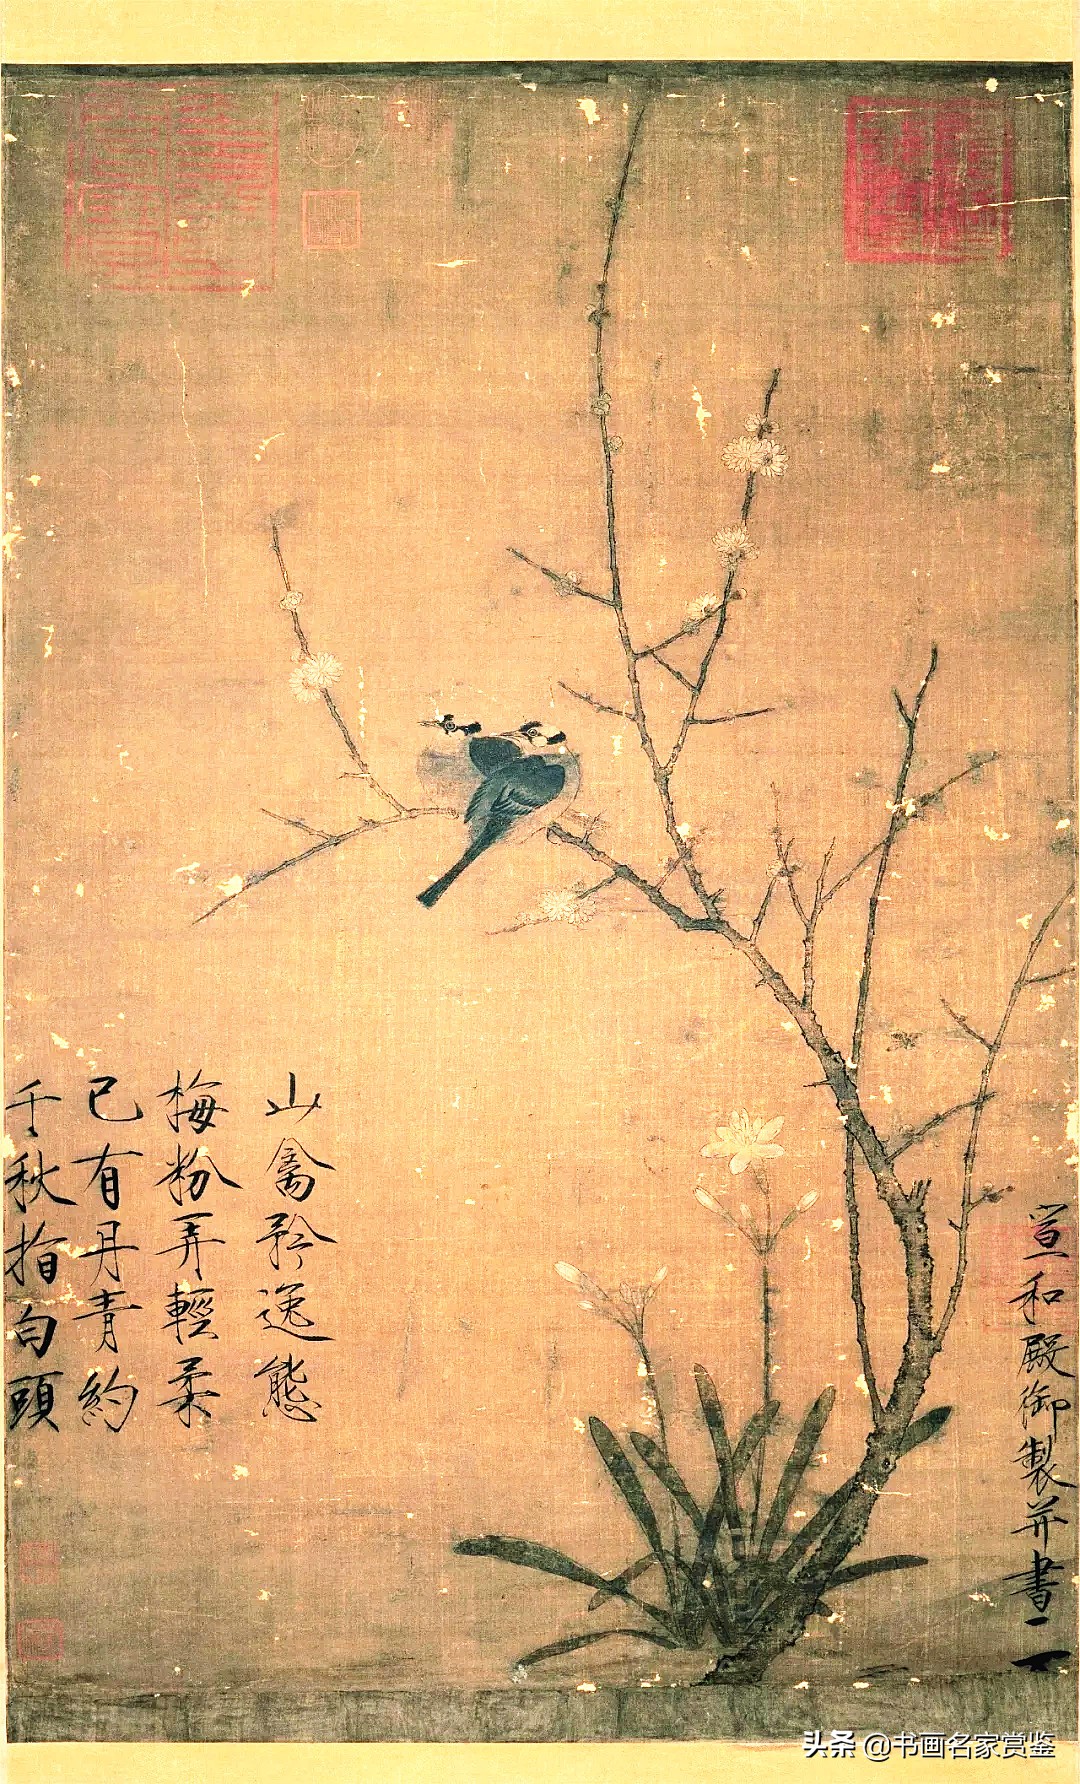 山禽矜逸態
梅粉弄輕柔
已有丹青約
千秋指白頭
宣和殿御製并書
头条 @书画名家赏鉴